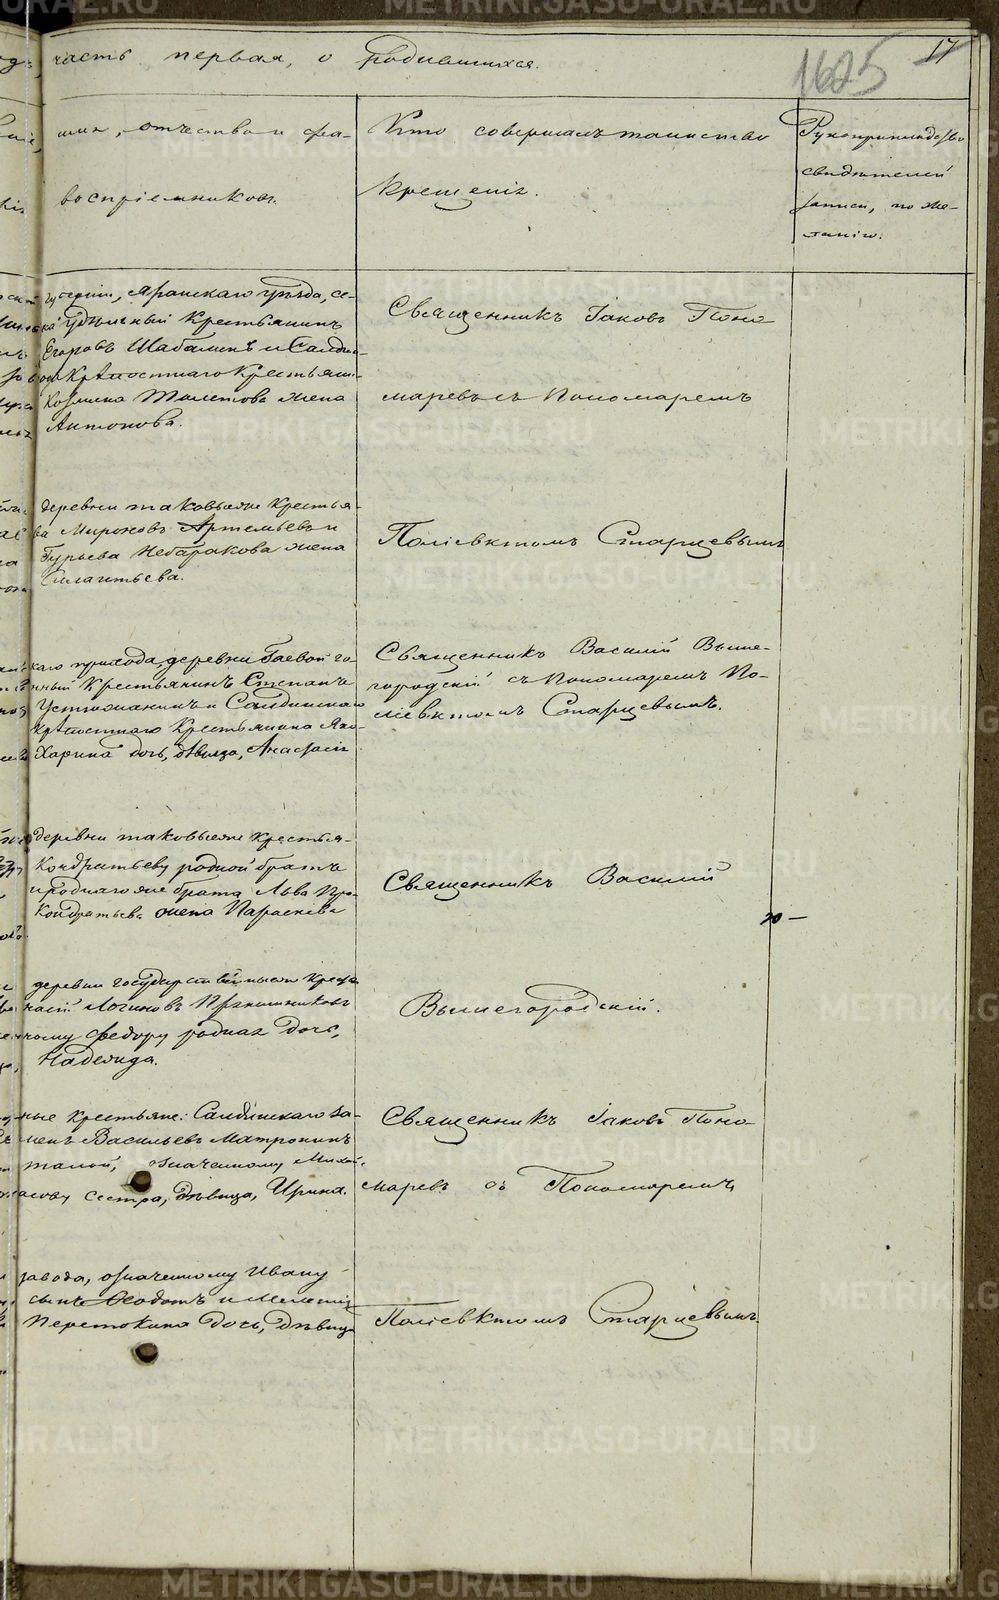 часть первая, о родившихся.
17
1625
имя, отчество и фа-
воспріемниковъ.
Кто совершалъ таинство
крещенія.
Рукоприкладство
свидѣтелей
записи, по же-
ланію.
губерніи, Яранскаго уѣзда, се-
удѣльный крестьянинъ
Егоровъ Шабалинъ и Салдин-
крѣпостнаго крестьяни-
Козьмина Толстова жена
Антонова.
Священникъ Іаковъ Поно
маревъ съ Пономаремъ
деревни таковыеже крестья-
Мироновъ Артемьевъ и
Гурьева Небаракова жена
Силантьева.
Поліевктомъ Старцевымъ
каго прихода, деревни Гаевой го-
нный крестьянинъ Степанъ
Устюжанинъ и Салдинскаго
крѣпостнаго крестьянина Яко-
Харина дочь, дѣвица, Анастасія
Священникъ Василій Выше-
городскій съ Пономаремъ По-
ліевктомъ Старцевымъ.
деревни таковыеже крестья-
Кондратьеву родной братъ
и роднагоже брата Льва Про-
Кондратьева жена Параскева
Священникъ Василій
деревни государственные крест
Логиновъ Пряничниковъ
чному Федору родная дочь,
Надежда.
Вышегородскій.
ные крестьяне: Салдинскаго за-
менъ Васильевъ Матронинъ
талой, означенному Михай-
асову сестра, дѣвица, Ирина.
Священникъ Іаковъ Поно
маревъ съ Пономаремъ
завода, означенному Ивану
сынъ Ѳеодотъ и Мелетія
Перетокина дочь, дѣвица
Поліевктомъ Старцевымъ.
METRIKI.GASO-URAL.RU